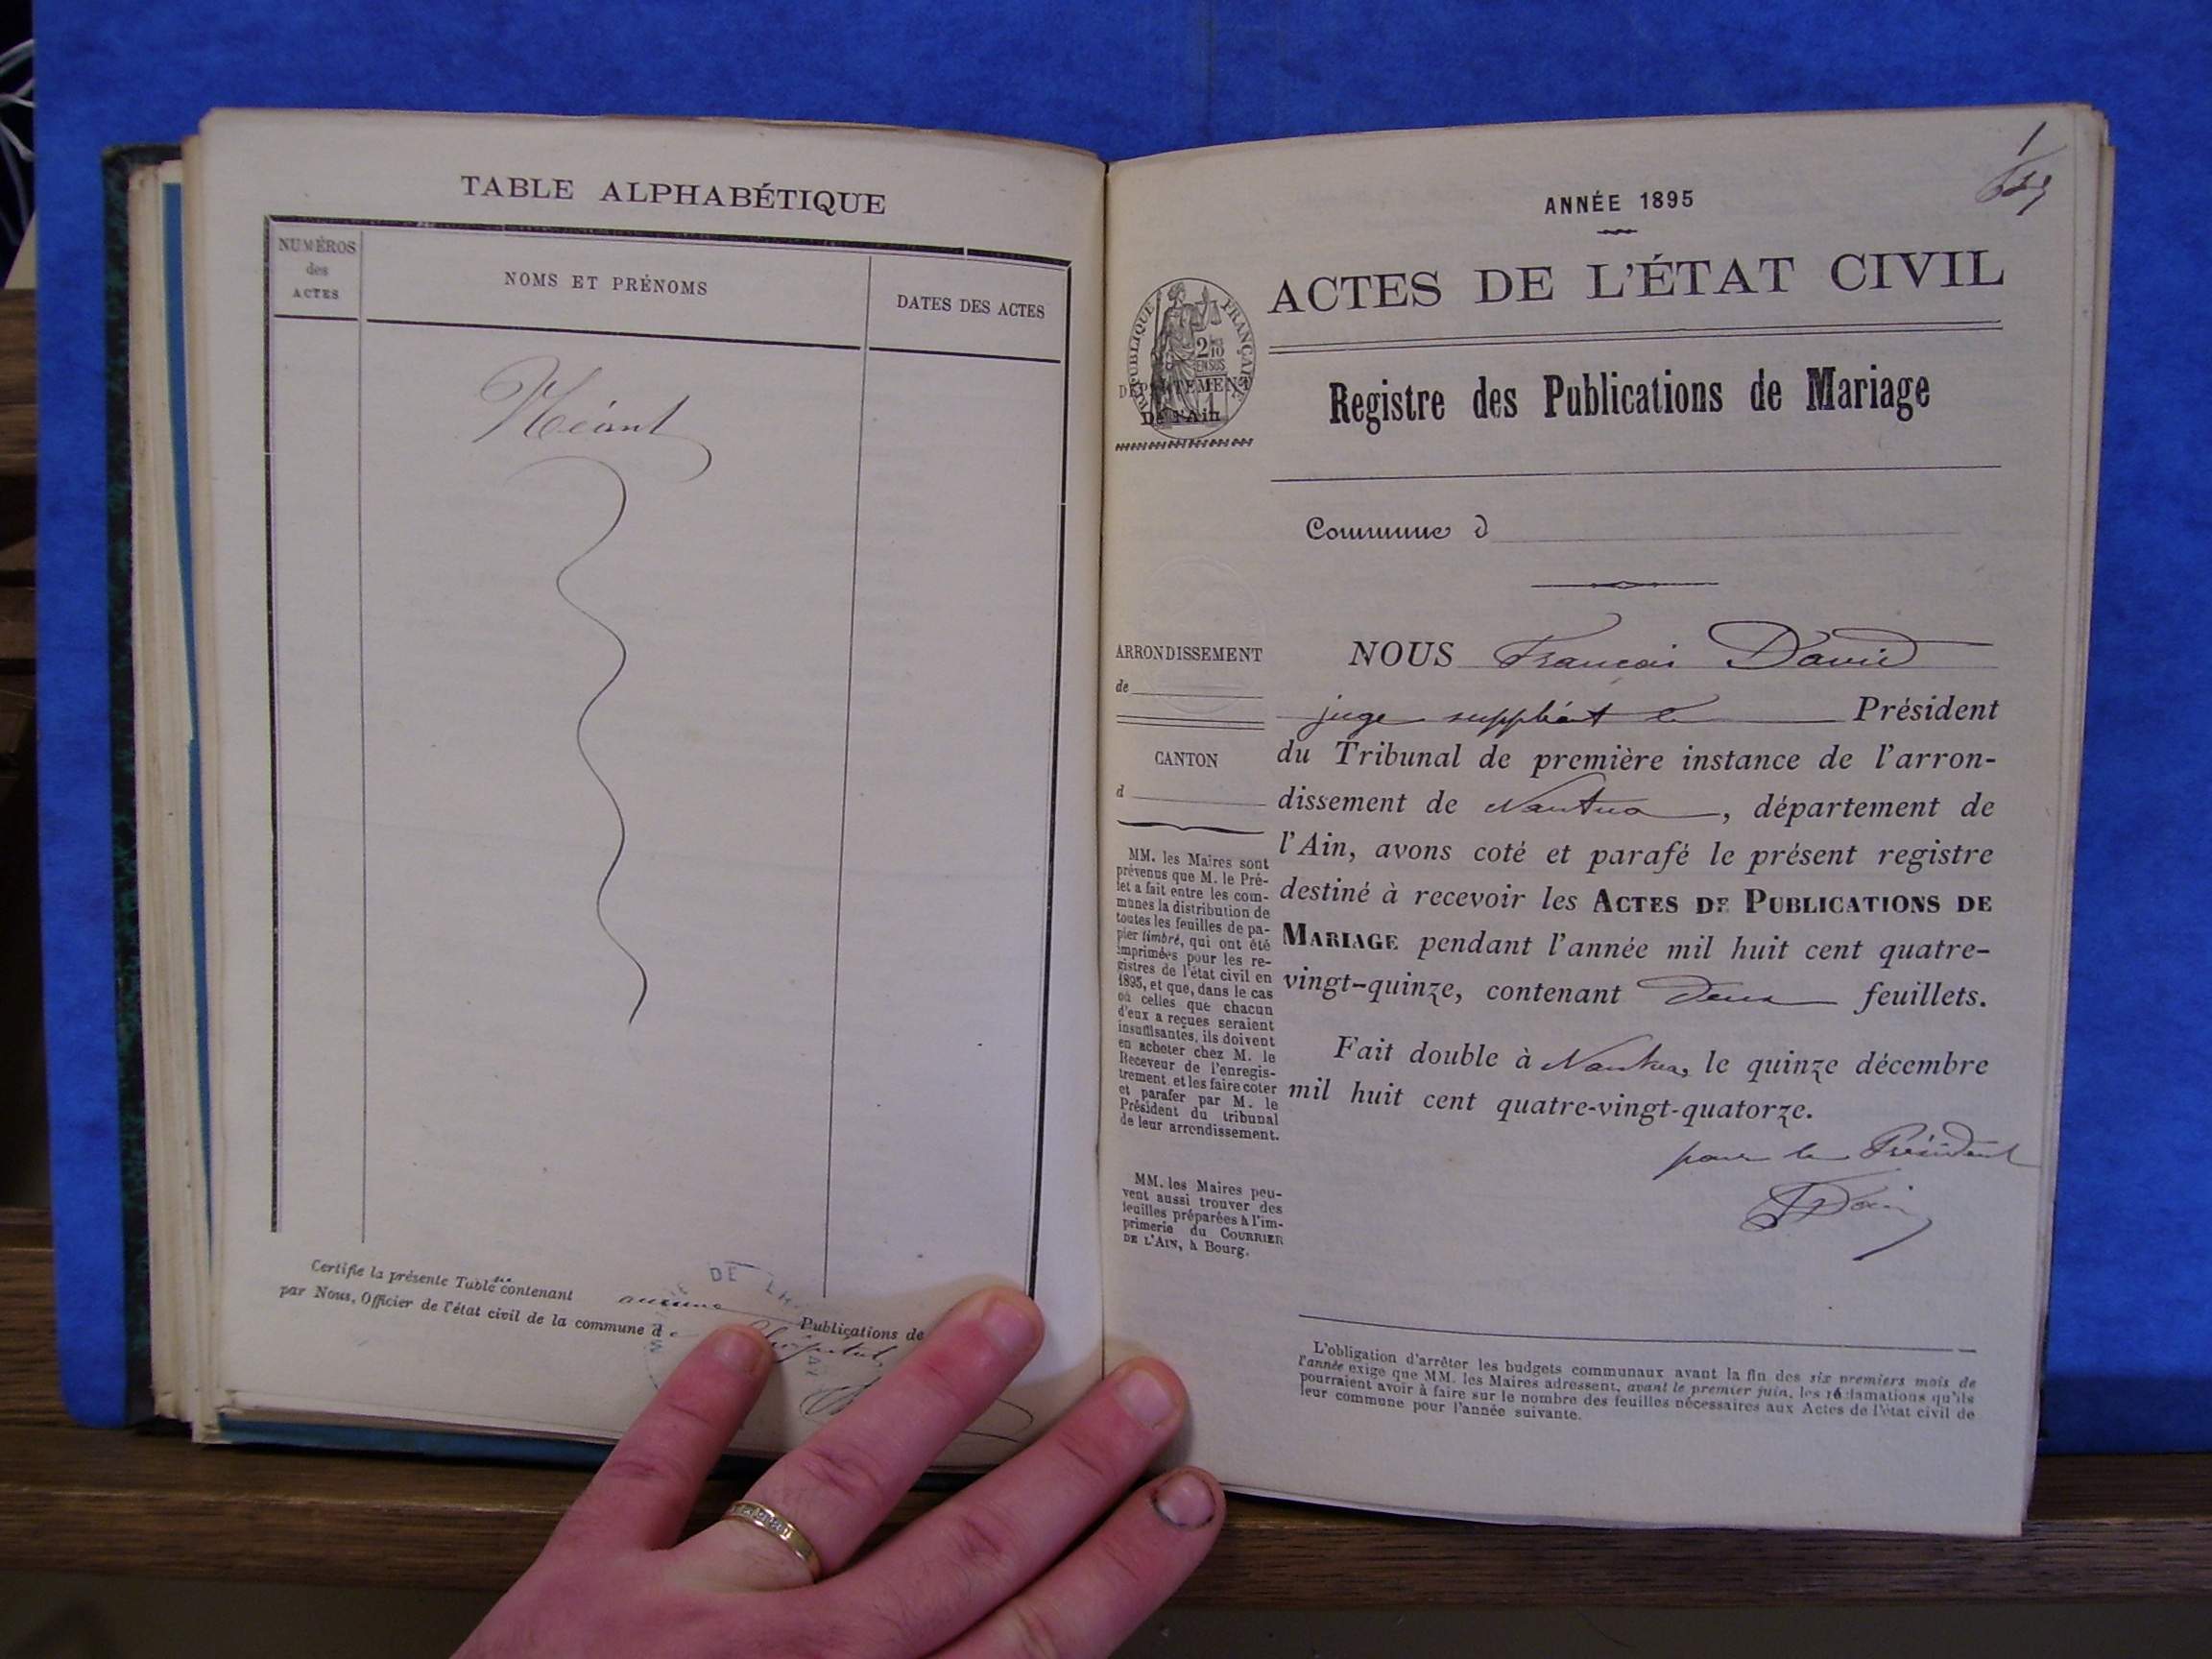 TABLE ALPHABÉTIQUE
NUMÉROS
des
ACTES
NOMS ET PRÉNOMS
DATES DES ACTES
Néant
Certifie la présente Table contenant aucune Publications de
par Nous, Officier de l'état civil de la commune de
1
ANNÉE 1895
ACTES DE L'ÉTAT CIVIL
RÉPUBLIQUE FRANÇAISE
DÉPARTEMENT
De l'Ain
Registre des Publications de Mariage
Commune d
ARRONDISSEMENT
de
CANTON
d
MM. les Maires sont
prévenus que M. le Pré-
fet a fait entre les com-
munes la distribution de
toutes les feuilles de pa-
pier timbré, qui ont été
imprimées pour les re-
gistres de l'état civil en
1895, et que, dans le cas
où celles que chacun
d'eux a reçues seraient
insuffisantes, ils doivent
en acheter chez M. le
Receveur de l'enregis-
trement et les faire coter
et parafer par M. le
Président du tribunal
de leur arrondissement.
MM. les Maires peu-
vent aussi trouver des
feuilles préparées à l'im-
primerie du COURRIER
DE L'AIN, à Bourg.
NOUS Francois David
juge suppléant le Président
du Tribunal de première instance de l'arron-
dissement de Nantua, département de
l'Ain, avons coté et parafé le présent registre
destiné à recevoir les ACTES DE PUBLICATIONS DE
MARIAGE pendant l'année mil huit cent quatre-
vingt-quinze, contenant deux feuillets.
Fait double à Nantua, le quinze décembre
mil huit cent quatre-vingt-quatorze.
pour le Président
L'obligation d'arrêter les budgets communaux avant la fin des six premiers mois de
l'année exige que MM. les Maires adressent, avant le premier juin, les réclamations qu'ils
pourraient avoir à faire sur le nombre des feuilles nécessaires aux Actes de l'état civil de
leur commune pour l'année suivante.